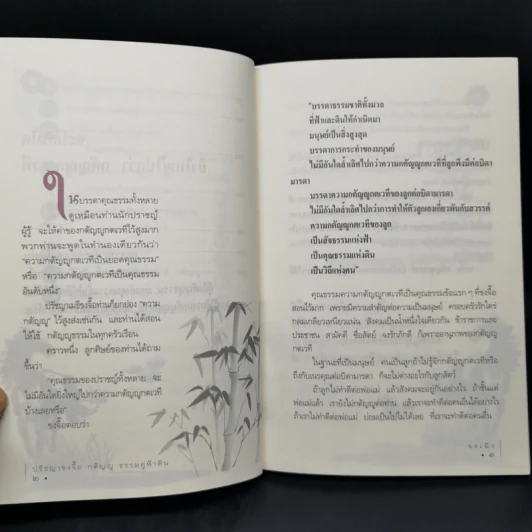 ในบรรดาคุณธรรมทั้งหลาย
ดูเหมือนท่านนักปราชญ์
ผู้รู้ จะให้ค่าของกตัญญูกตเวทีไว้สูงมาก
พวกท่านจะพูดในทำนองเดียวกันว่า
"ความกตัญญูกตเวทีเป็นยอดคุณธรรม"
หรือ "ความกตัญญูกตเวทีเป็นคุณธรรม
อันดับหนึ่ง"
ปรัชญาเมธีขงจื๊อท่านก็ยกย่อง "ความ
กตัญญู" ไว้สูงส่งเช่นกัน และท่านได้สอน
ให้ใช้ กตัญญูธรรมในทุกครัวเรือน
คราวหนึ่ง ลูกศิษย์ของท่านได้ถาม
ขึ้นว่า
"คุณธรรมของปราชญ์ทั้งหลาย จะ
ไม่มีอันใดยิ่งใหญ่ไปกว่าความกตัญญูกตเวที
บ้างเลยหรือ"
ขงจื๊อตอบว่า
ปรัชญาขงจื๊อ กตัญญู ธรรมคู่ฟ้าดิน
๒
"บรรดาธรรมชาติทั้งมวล
ที่ฟ้าและดินให้กำเนิดมา
มนุษย์เป็นสิ่งสูงสุด
บรรดาการกระทำของมนุษย์
ไม่มีอันใดล้ำเลิศไปกว่าความกตัญญูกตเวทีที่ลูกพึงมีต่อบิดา
มารดา
บรรดาความกตัญญูกตเวทีของลูกต่อบิดามารดา
ไม่มีอันใดล้ำเลิศไปกว่าการทำให้ตัวลูกเองเกี่ยวพันกับสวรรค์
ความกตัญญูกตเวทีของลูก
เป็นสัจธรรมแห่งฟ้า
เป็นคุณธรรมแห่งดิน
เป็นวิถีแห่งคน"
คุณธรรมความกตัญญูกตเวทีเป็นคุณธรรมข้อแรก ๆ ที่ขงจื๊อ
สอนไว้มาก เพราะมีความสำคัญต่อความเป็นมนุษย์ ครอบครัวรักใคร่
กลมเกลียวเหนียวแน่น สังคมเป็นน้ำหนึ่งใจเดียวกัน ข้าราชการและ
ประชาชน สามัคคี ซื่อสัตย์ จงรักภักดี ก็เพราะอานุภาพของกตัญญู
กตเวที
ในฐานะที่เป็นมนุษย์ คนเป็นลูกถ้าไม่รู้จักกตัญญูกตเวทีหรือ
ถึงกับเนรคุณต่อบิดามารดา ก็จะไม่ต่างอะไรกับลูกสัตว์
ถ้าลูกไม่ทำดีต่อพ่อแม่ แล้วสังคมจะอยู่กันอย่างไร ถ้าขั้นแค่
พ่อแม่แล้ว เรายังไม่กตัญญูต่อท่าน แล้วเราจะทำดีต่อคนอื่นได้อย่างไร
ถ้าเราไม่ทำดีต่อพ่อแม่ ย่อมเป็นไปไม่ได้เลย ที่เราจะทำดีต่อคนอื่น
๓